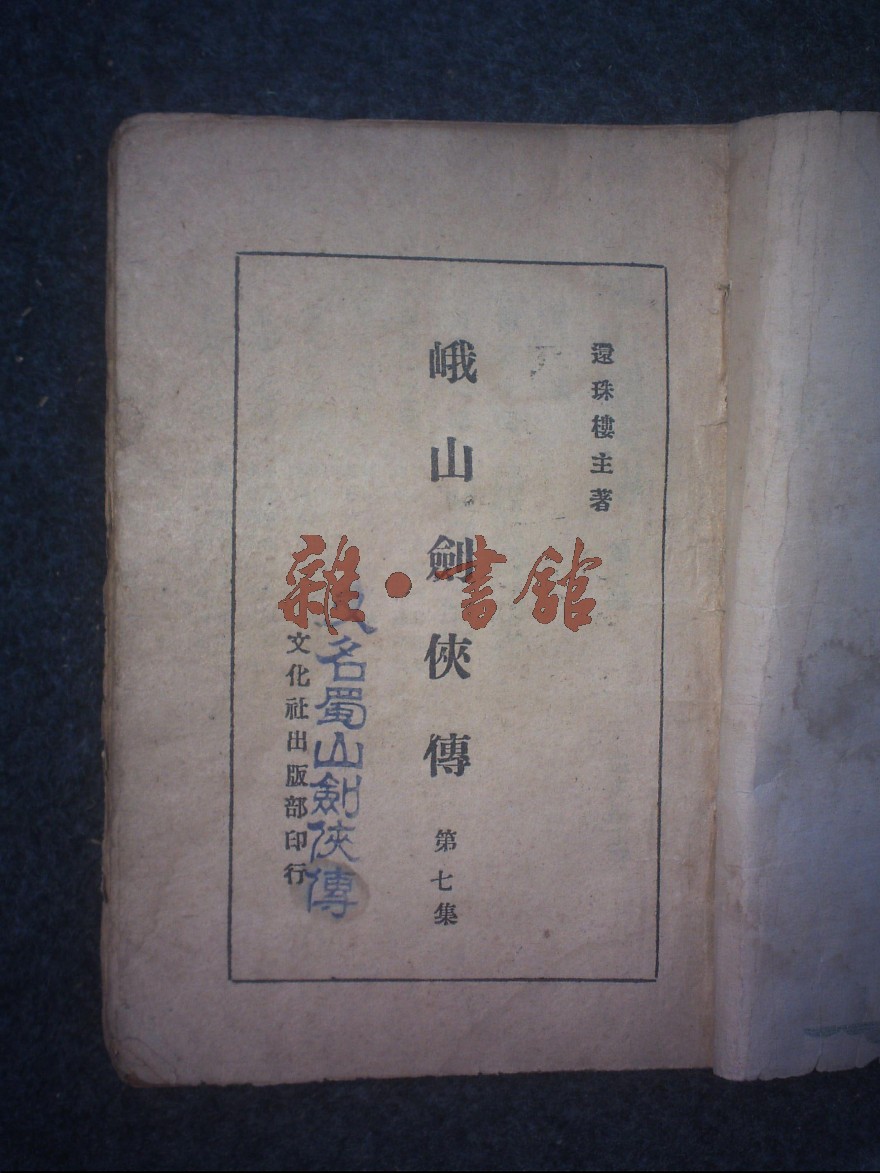 還珠樓主著
峨山劍俠傳 第七集
名蜀山劍俠傳
文化社出版部印行
雜·書館